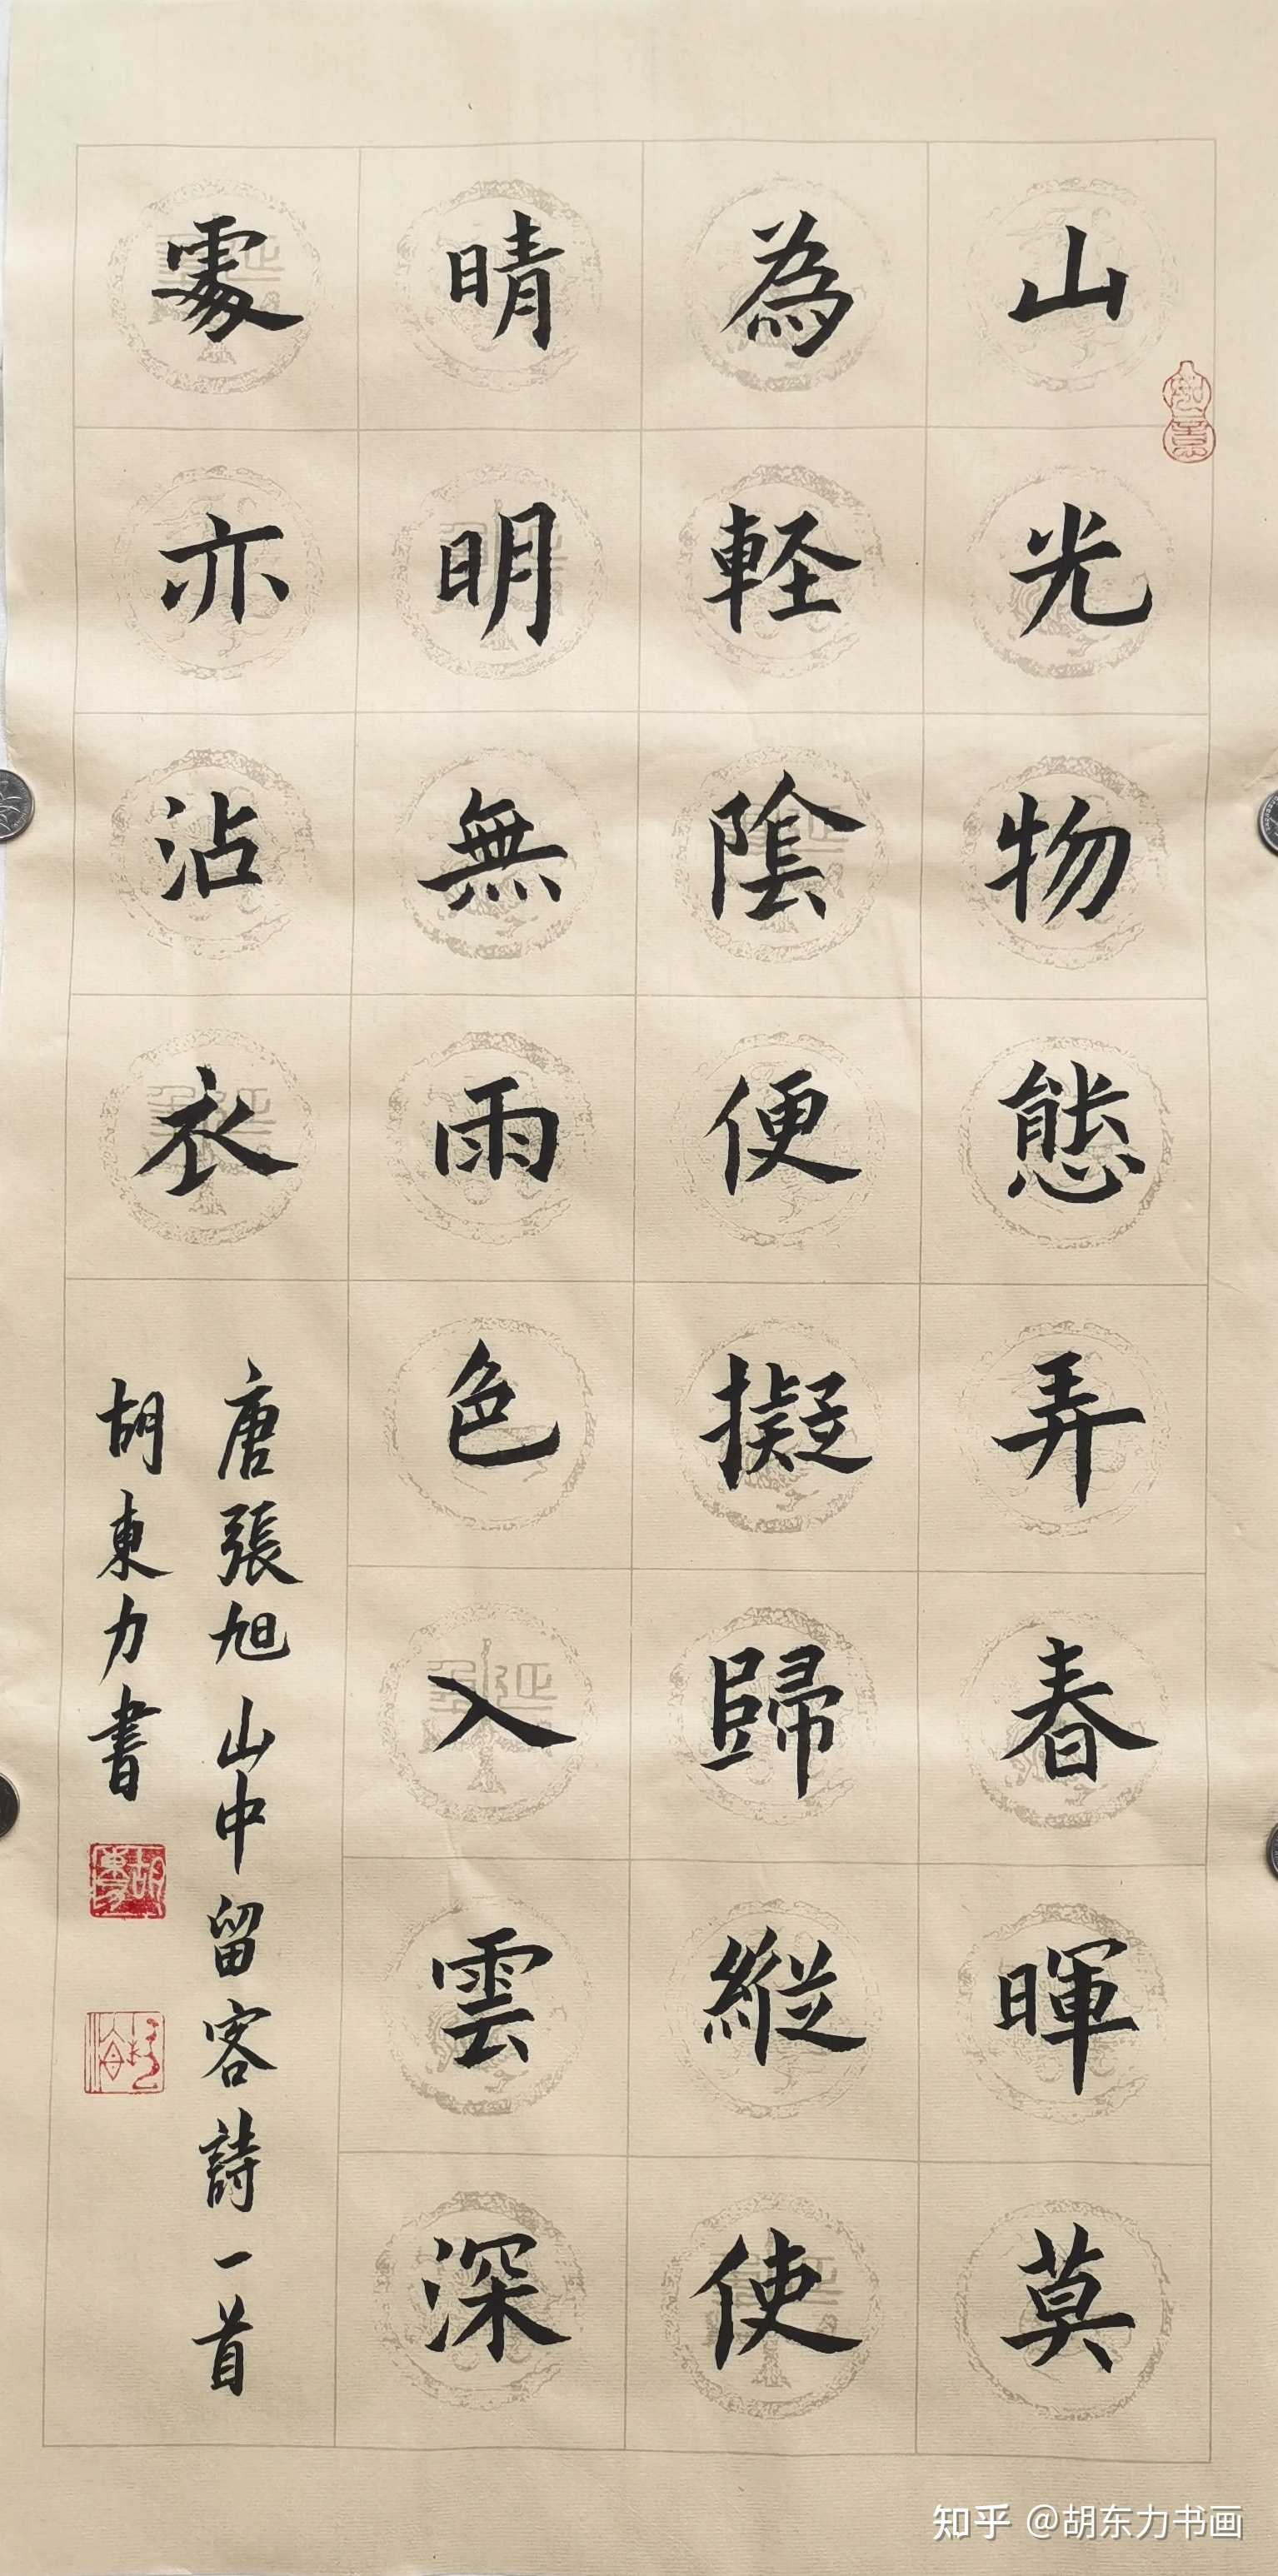 山光物態弄春暉莫
為軽陰便擬歸縱使
晴明無雨色入雲深
處亦沾衣
唐張旭山中留客詩一首
胡東力書
知乎 @胡东力书画